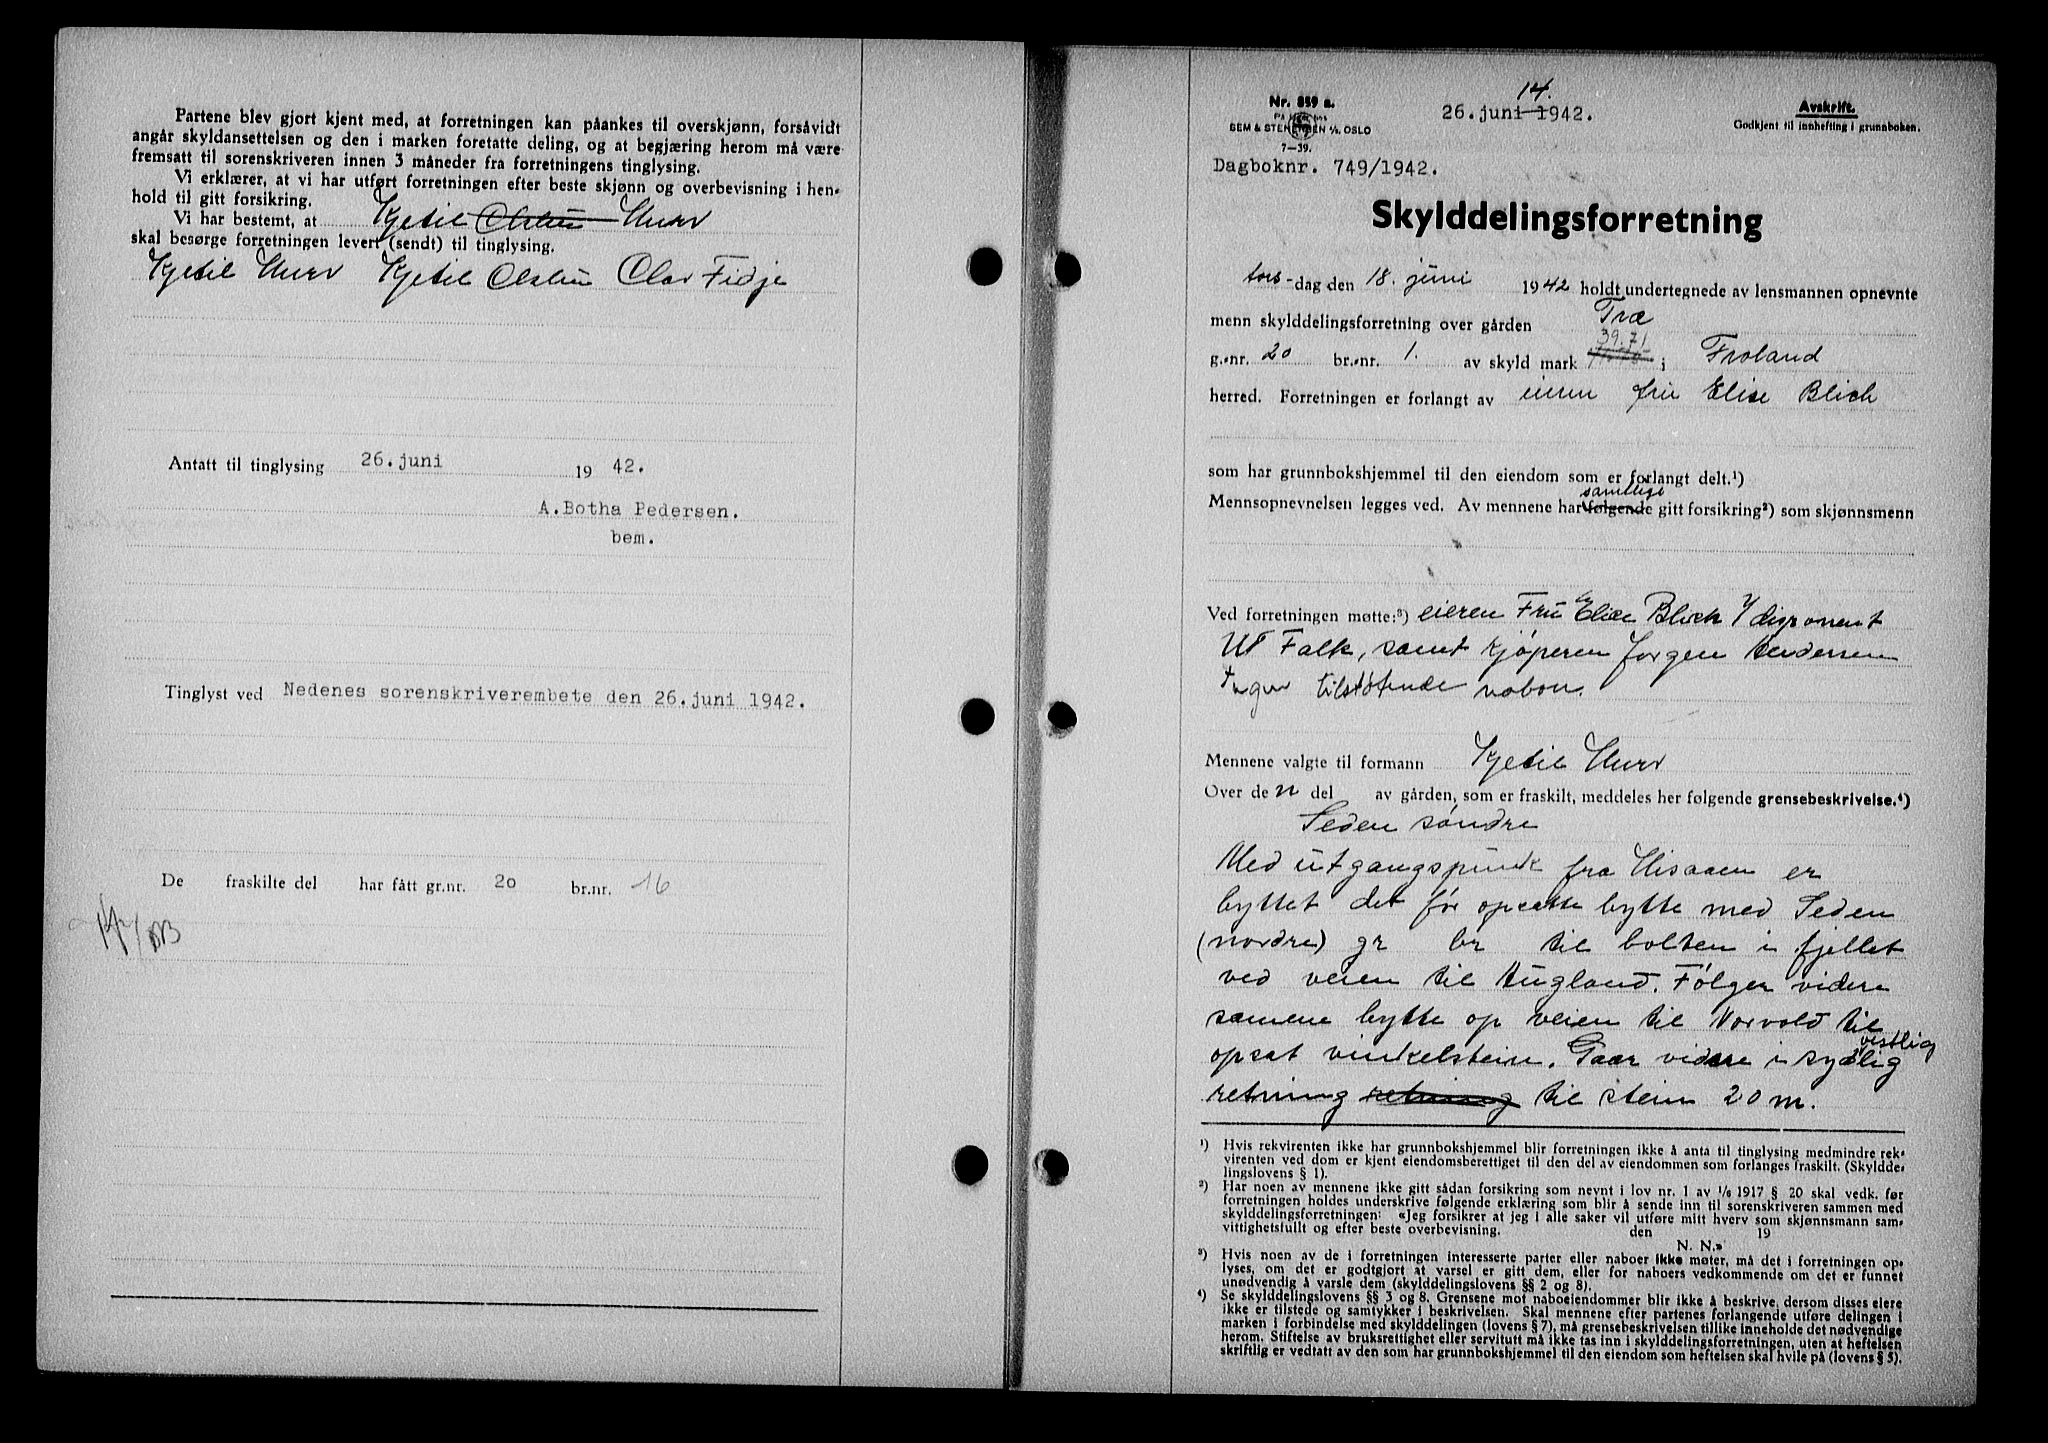 Partene blev gjort kjent med, at forretningen kan påankes til overskjønn, forsåvidt
angår skyldansettelsen og den i marken foretatte deling, og at begjæring herom må være
fremsatt til sorenskriveren innen 3 måneder fra forretningens tinglysing.
Vi erklærer, at vi har utført forretningen efter beste skjønn og overbevisning i hen-
hold til gitt forsikring.
Vi har bestemt, at Kjetil Olstun Hurv
skal besørge forretningen levert (sendt) til tinglysing.
Kjetil Hurv Kjetil Olstun Olav Fidje
Antatt til tinglysing 26. juni 1942.
A. Botha Pedersen.
bem.
Tinglyst ved Nedenes sorenskriverembete den 26. juni 1942.
De fraskilte del har fått gr.nr. 20 br.nr. 16
14.
Nr. 859 a.
SEM & STENERSEN A/S, OSLO
7—39.
26. juni 1942.
Avskrift.
Godkjent til innhefting i grunnboken.
Dagboknr. 749/1942.
Skylddelingsforretning
tors-dag den 18. juni 1942 holdt undertegnede av lensmannen opnevnte
menn skylddelingsforretning over gården Træ
39.71
g.-nr. 20 br.-nr. 1. av skyld mark i Froland
herred. Forretningen er forlangt av eieren fru Elise Blich
som har grunnbokshjemmel til den eiendom som er forlangt delt.¹)
samtlige
Mennsopnevnelsen legges ved. Av mennene har følgende gitt forsikring²) som skjønnsmenn
Ved forretningen møtte:³) eieren Fru Elise Blich v/ disponent
Falk, samt kjøperen Jørgen Hendersen
Ingen tilstøtende naboer.
Mennene valgte til formann Kjetil Hurv
Over de n del av gården, som er fraskilt, meddeles her følgende grensebeskrivelse.⁴)
Seden søndre
Med utgangspunk fra Hisaaen er
byttet det før opsatte bytte med Seden
(nordre) gr br til bolten i fjellet
ved veien til Hugland. Følger videre
samene bytte op veien til Norvold til
opsat vinkelstein. Gaar videre i sydlig vestlig
retning retning til stein 20 m.
¹) Hvis rekvirenten ikke har grunnbokshjemmel blir forretningen ikke å anta til tinglysing medmindre rek-
virenten ved dom er kjent eiendomsberettiget til den del av eiendommen som forlanges fraskilt. (Skyldde-
lingslovens § 1).
²) Har noen av mennene ikke gitt sådan forsikring som nevnt i lov nr. 1 av 1/6 1917 § 20 skal vedk. før
forretningen holdes underskrive følgende erklæring som blir å sende inn til sorenskriveren sammen med
skylddelingsforretningen: «Jeg forsikrer at jeg i alle saker vil utføre mitt hverv som skjønnsmann sam-
vittighetsfullt og efter beste overbevisning. den 19
N. N.»
³) Hvis noen av de i forretningen interesserte parter eller naboer ikke møter, må det i forretningen op-
lyses, om det er godtgjort at varsel er gitt dem, eller for naboers vedkommende om det er funnet
unødvendig å varsle dem (skylddelingslovens §§ 2 og 8).
⁴) Se skylddelingslovens §§ 3 og 8. Grensene mot naboeiendommer blir ikke å beskrive, dersom disses eiere
ikke er tilstede og samtykker i beskrivelsen. Skal mennene efter partenes forlangende utføre delingen i
marken i forbindelse med skylddelingen (lovens § 7), må grensebeskrivelsen tillike inneholde det nødvendige
herom. Stiftelse av bruksrettighet eller servitutt må ikke tas inn i skylddelingsforretningen, uten at heftelsen
skriftlig er vedtatt av den som har grunnbokshjemmel til den eiendom som heftelsen skal hvile på (lovens § 5).